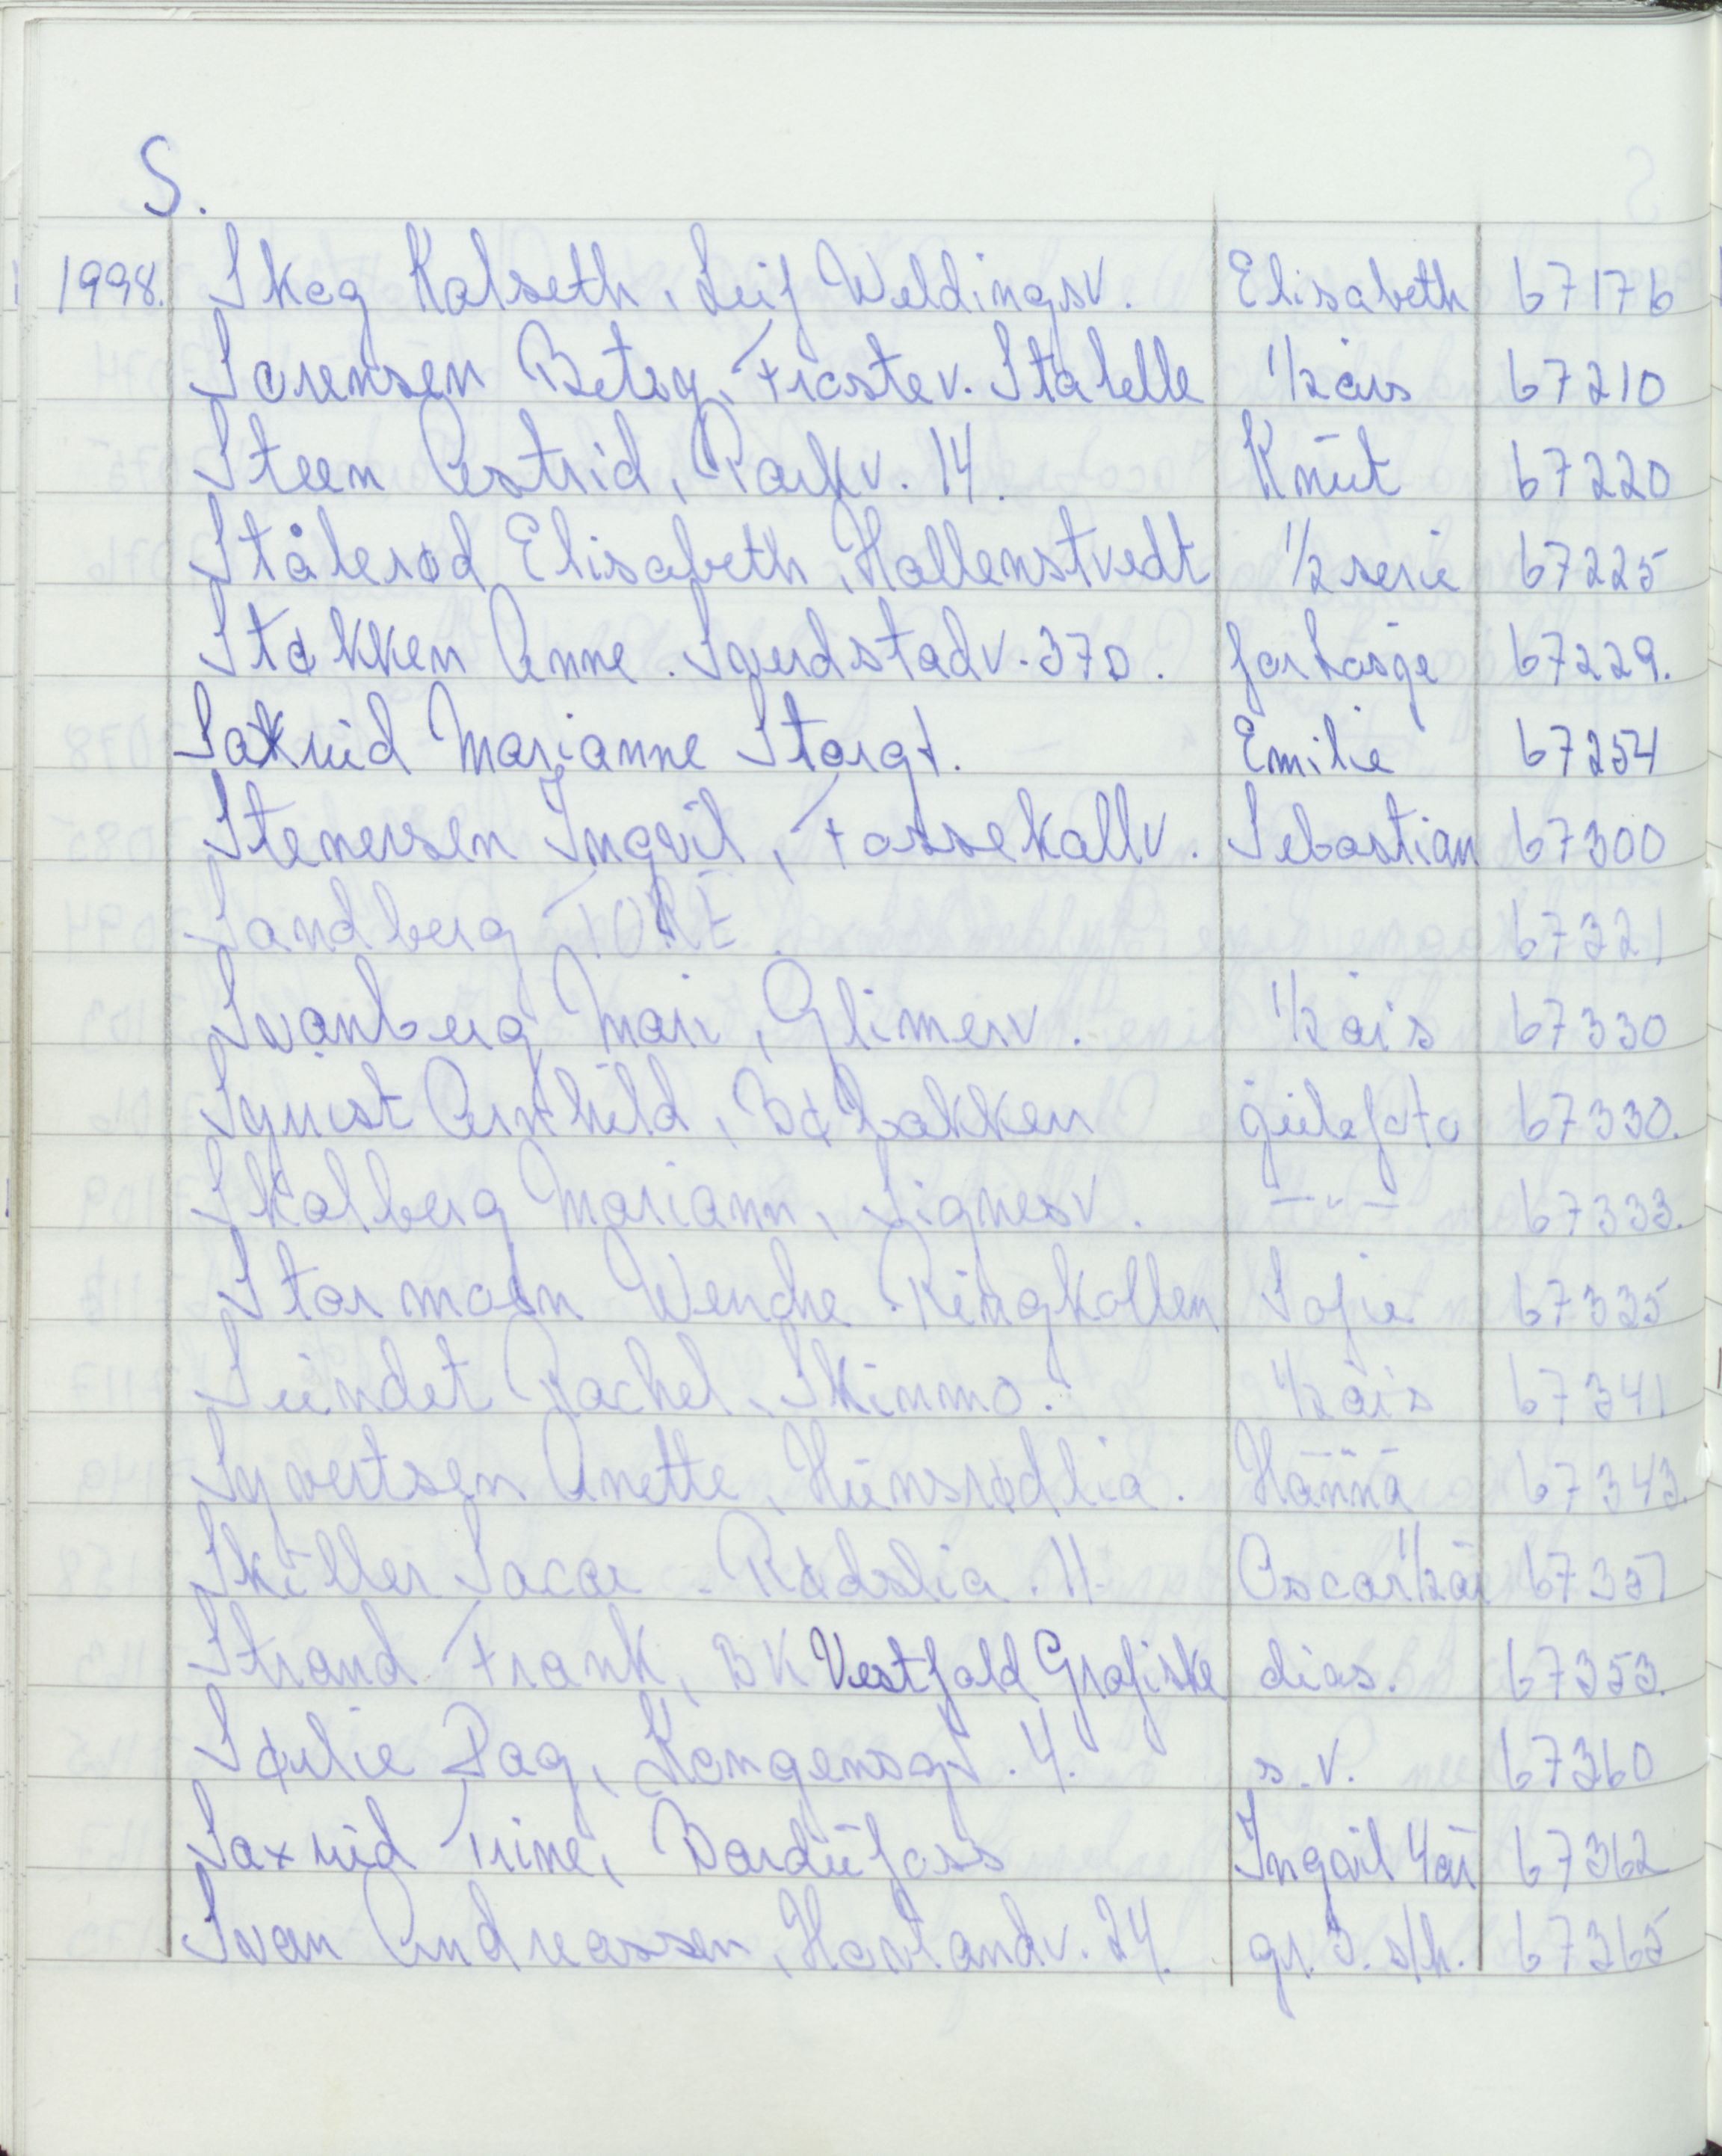 S.
1998. Skog Kalseth, Leif Weldingsv. Elisabeth 67176
Sørensen Betsy, Frostev. Stålelle 1/2 års 67210
Steen Astrid, Parkv. 14. Knut 67220
Stålerød Elisabeth, Hallenstvedt 1/2 serie 67225
Støkken Anne. Sverdstadv. 370. 67229.
Marianne Storgt. Emilie 67254
Stenersen Ingvil, Fossekallv. Sebastian 67300
Sandberg TORE 67321
Svanberg Mari, Glimerv. 1/2 års 67330
Syvist Arnhild, Bøbakken julefoto 67330.
Skalberg Mariann, Signesv. —"— 67333.
Stormoen Wenche Ringkollen Sofie 67335
Sundet Rachel, Skinmo. 1/2 års 67341
Syvertsen Anette, Hunsrødlia. Hanna 67343.
Skiller Rødslia. 11. Oscar 1/2 år 67351
Strand Frank, BK Vestfold Grafiske dias. 67353.
Sørlie Dag, Kongensgt. 4. s.v. 67360
Saxrud Trine, Bardufoss Ingvil 4 år 67362
Svan Andreassen, Havlandv. 24. gr. 3. s/h. 67365